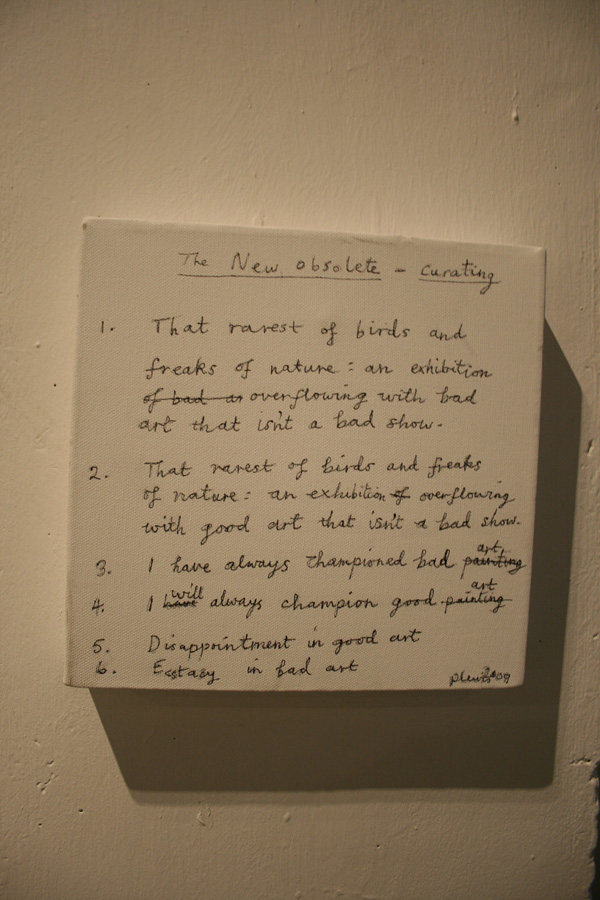 The New obsolete – Curating
1. That rarest of birds and
freaks of nature : an exhibition
of bad ar overflowing with bad
art that isn't a bad show.
2. That rarest of birds and freaks
of nature : an exhibition of overflowing
with good art that isn't a bad show.
art
3. I have always championed bad painting
will art
4. I have always champion good painting
5. Disappointment in good art
6. Ecstacy in bad art